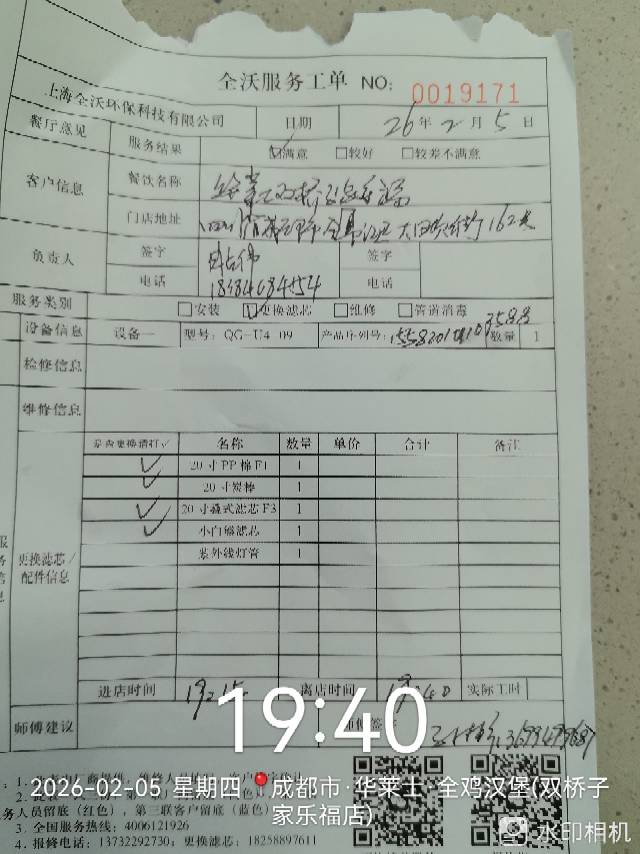 全沃服务工单 NO: 0019171
上海全沃环保科技有限公司 日期 26年2月5日
餐厅意见 服务结果 ☑满意 □较好 □较差不满意
客户信息 餐饮名称
门店地址 162号
负责人 签字 签字
电话 电话
服务类别 □安装 ☑更换滤芯 □维修 □管道消毒
设备信息 设备一 型号: QG-U4 09 产品序列号: 数量 1
检修信息
维修信息
是否更换请打✓ 名称 数量 单价 合计 备注
✓ 20寸PP棉F1 1
✓ 20寸炭棒 1
✓ 20寸叠式滤芯F3 1
✓ 小白鲸滤芯 1
紫外线灯管 1
更换滤芯/
配件信息
进店时间 19:15 离店时间 19:40 实际工时
师傅建议 师傅签字
19:40
2026-02-05 星期四 成都市·华莱士·全鸡汉堡(双桥子
家乐福店)
务人员留底(红色),第三联客户留底(蓝色)
3. 全国服务热线: 4006121926
4. 报修电话: 13732292730; 更换滤芯: 18258897611
水印相机